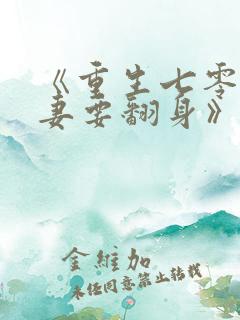 《重生七零
妻要翻身》
金维加
未经同意禁止转载